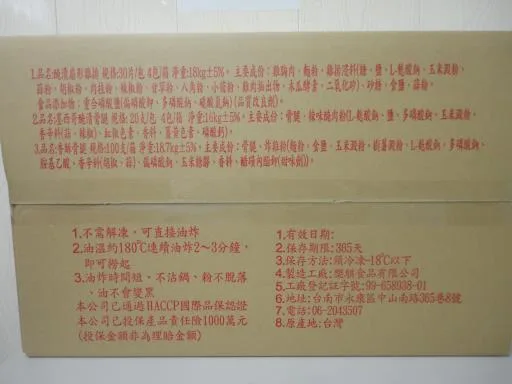 1.品名:醃漬扇形雞排 規格:30片/包 4包/箱 淨重:18kg±5%。主要成份:雞胸肉、麵粉、雞排浸料(糖、鹽、L-麩酸鈉、玉米澱粉、
蒜粉、胡椒粉、肉桂粉、辣椒粉、甘草粉、八角粉、小茴粉、雞肉抽出物、木瓜酵素、二氧化矽)、砂糖、食鹽、蒜粉。
食品添加物:重合磷酸鹽(偏磷酸鉀、多磷酸鈉、碳酸氫鈉)(品質改良劑)。
2.品名:墨西哥醃漬骨腿 規格:20支/包 4包/箱 淨重:16kg±5%。主要成份:骨腿、辣味醃肉粉(L-麩酸鈉、鹽、多磷酸鈉、玉米澱粉、
香辛料(蒜、辣椒)、紅椒色素、香料、薑黃色素、磷酸鈣)。
3.品名:香酥骨腿 規格:100支/箱 淨重:18.7kg±5%。主要成份:骨腿、炸雞粉(麵粉、食鹽、玉米澱粉、樹薯澱粉、L-麩酸鈉、多磷酸鈉、
胺基乙酸、香辛料(胡椒、蒜)、偏磷酸鈉、玉米糖膠、香料、醋磺內酯鉀(甜味劑))。
1.不需解凍，可直接油炸
2.油溫約180℃連續油炸2～3分鐘，
即可撈起
3.油炸時間短、不沾鍋、粉不脫落
、油不會變黑
本公司已通過HACCP國際品保認證
本公司已投保產品責任險1000萬元
(投保金額非為理賠金額)
1.有效日期:
2.保存期限:365天
3.保存方法:須冷凍-18℃以下
4.製造工廠:樂騏食品有限公司
5.工廠登記証字號:99-658938-01
6.地址:台南市永康區中山南路365巷8號
7.電話:06-2043507
8.原產地:台灣